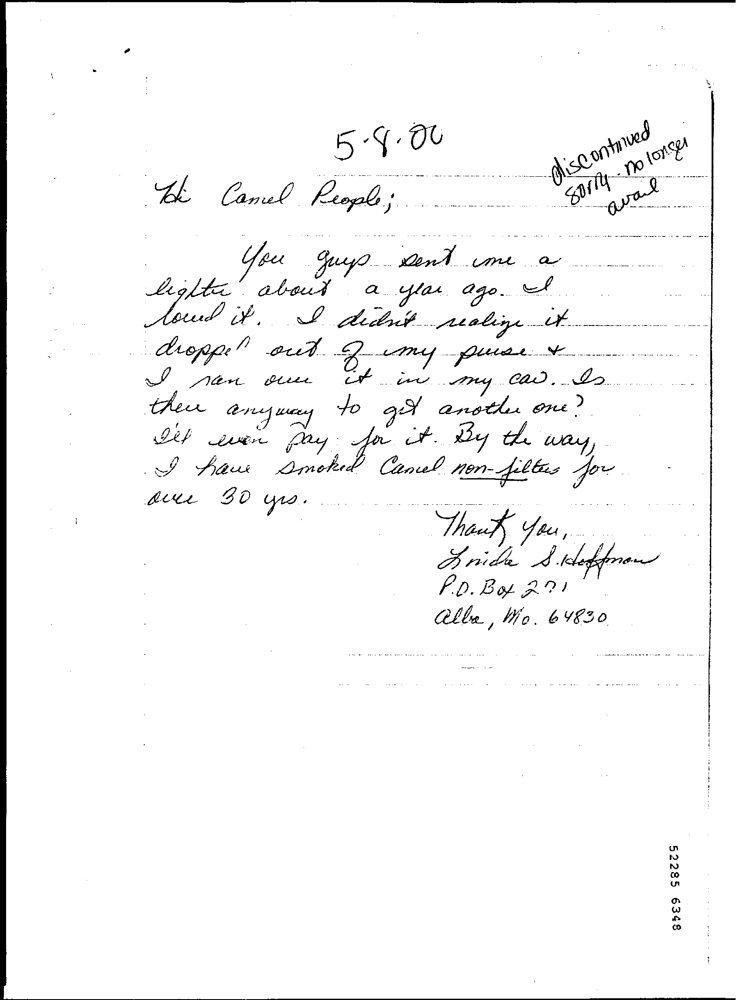 5.8.00
discontinued
sorry no longer
avail
Hi Camel People;
You guys sent me a
lighter about a year ago. I
loved it. I didn't realize it
dropped out of my purse &
I ran over it in my car. Is
there anyway to get another one?
I'll even pay for it. By the way,
I have smoked Camel non-filters for
over 30 yrs.
Thank You,
S. Hoffman
P.O. Box
Alba, Mo. 64830
52285 6348